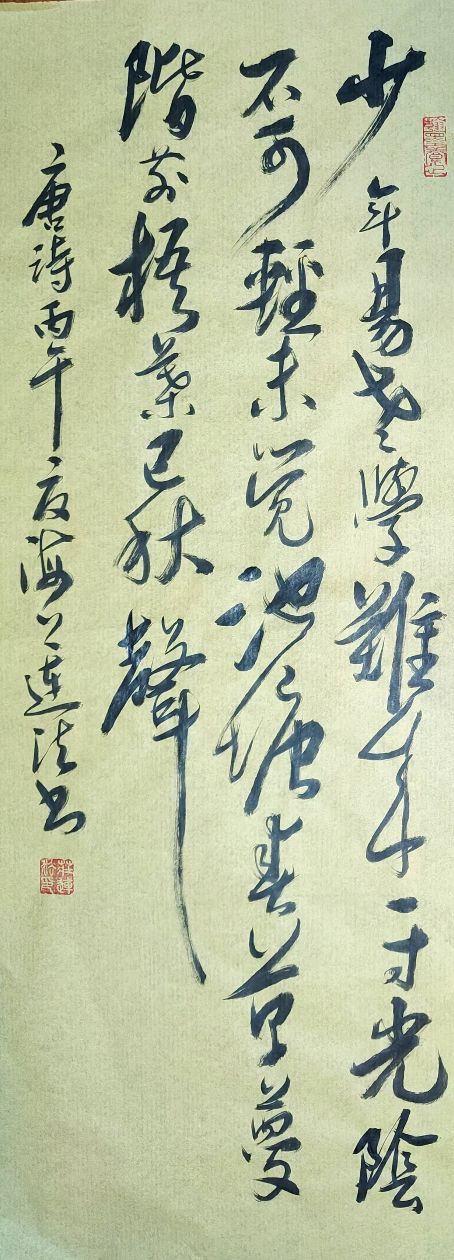 少年易老學難成一寸光陰
不可輕未觉池塘春草夢
階前梧葉已秋聲
唐詩丙午夏海上連法书